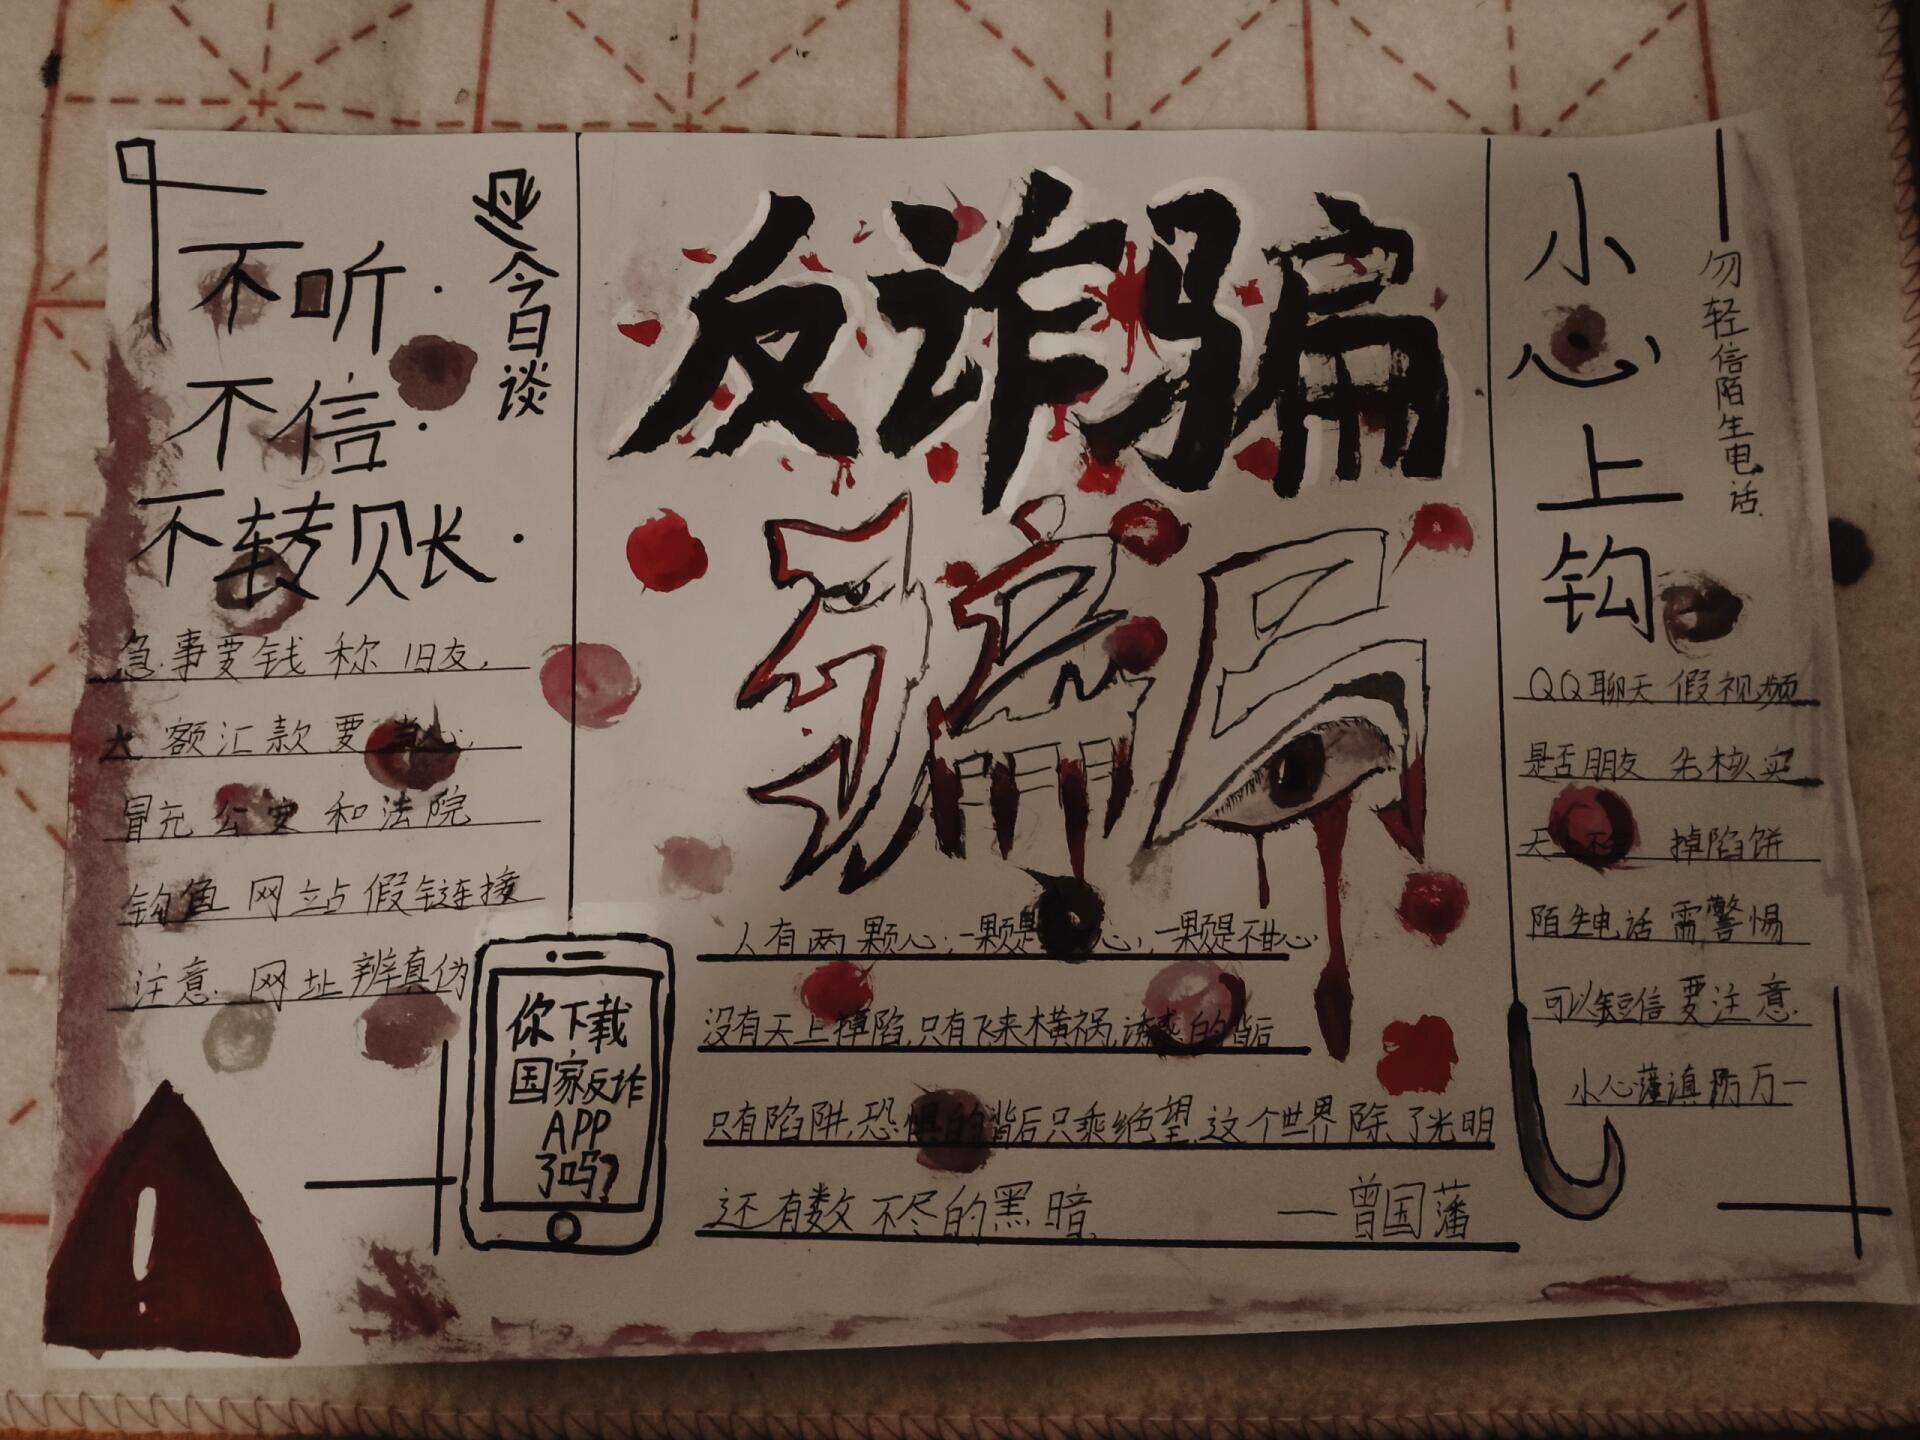 今日谈
不听.
不信.
不转账.
急事要钱 称 旧友,
大额汇款要当心,
冒充公安和法院
钩鱼网站假链接
注意.网址辨真伪
你下载
国家反诈
APP
了吗?
反诈骗
骗局
人有两颗心,一颗是 心,一颗是不甘心
没有天上掉陷,只有飞来横祸,诱惑的背后
只有陷阱,恐惧的背后只乘绝望,这个世界除了光明
还有数不尽的黑暗
—曾国藩
小心上钩
勿轻信陌生电话.
QQ聊天 假视频
是否朋友 先核实
天 掉陷饼
陌生电话需警惕
可以短信要注意.
小心谨慎防万一